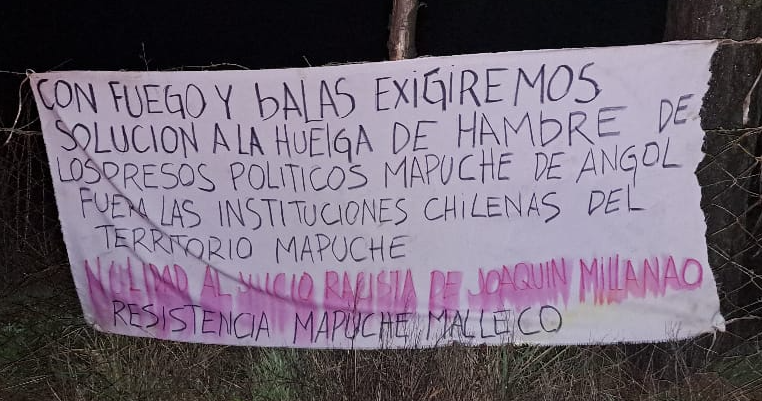 CON FUEGO Y bALAS EXIGIREMOS
SOLUCION A LA HUElGA DE HAMbRE DE
LOS PRESOS POLITICOS MAPUCHE DE ANGOL
FUERA LAS INSTITUCIONES CHILENAS DEL
TERRITORIO MAPUCHE
NULIDAD AL JUICIO RACISTA DE JOAQUIN MILLANAO
RESISTENCIA MAPUCHE MALLECO